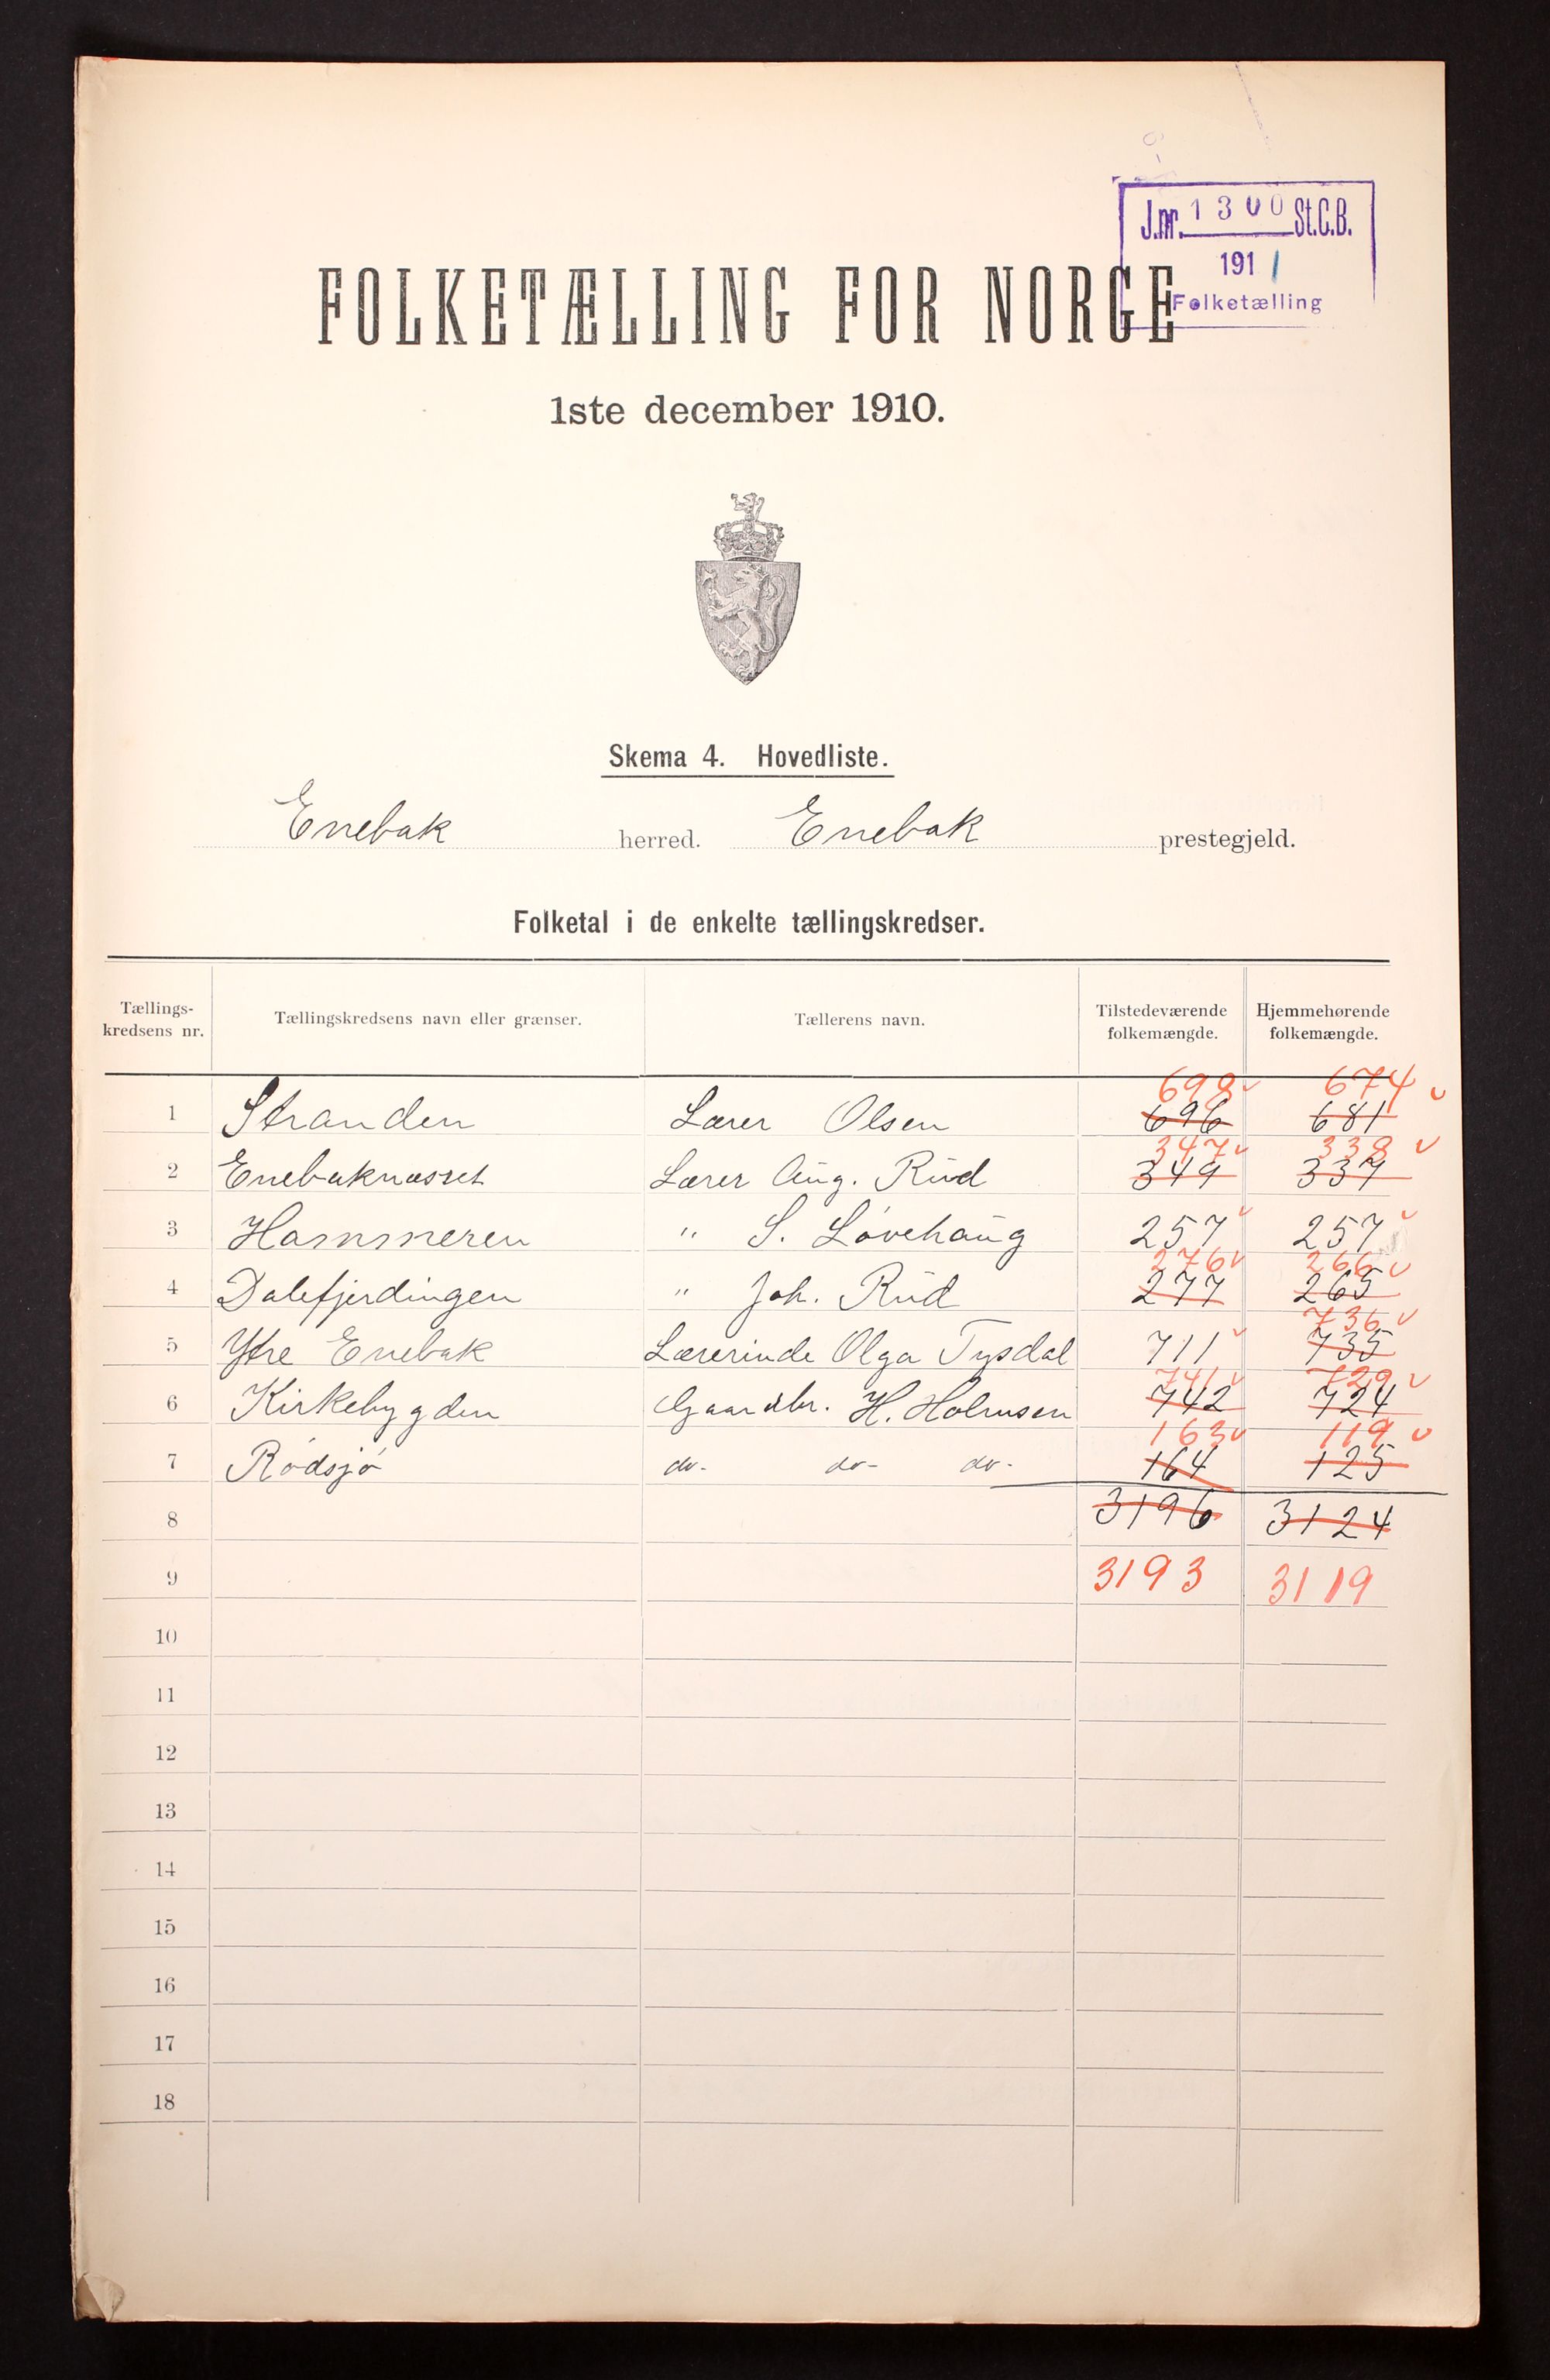 J.nr. 1300 St.C.B.
1911
Folketælling
FOLKETÆLLING FOR NORGE
1ste december 1910.
Skema 4. Hovedliste.
Enebak herred. Enebak prestegjeld.
Folketal i de enkelte tællingskredser.
Tællings-kredsens nr. Tællingskredsens navn eller grænser. Tællerens navn. Tilstedeværende folkemængde. Hjemmehørende folkemængde.
698 674
1 Stranden Lærer Olsen 696 681
347 338
2 Enebaknæsset Lærer Aug. Rud 349 337
3 Hammeren " S. Løvehaug 257 257
276 266
4 Dalefjerdingen " Joh. Rud 277 265
736
5 Ytre Enebak Lærerinde Olga Tysdal 711 735
741 729
6 Kirkebygden Gaardbr. H. Holmsen 742 724
163 119
7 Rødsjø do- do- do- 164 125
8 3196 3124
9 3193 3119
10
11
12
13
14
15
16
17
18